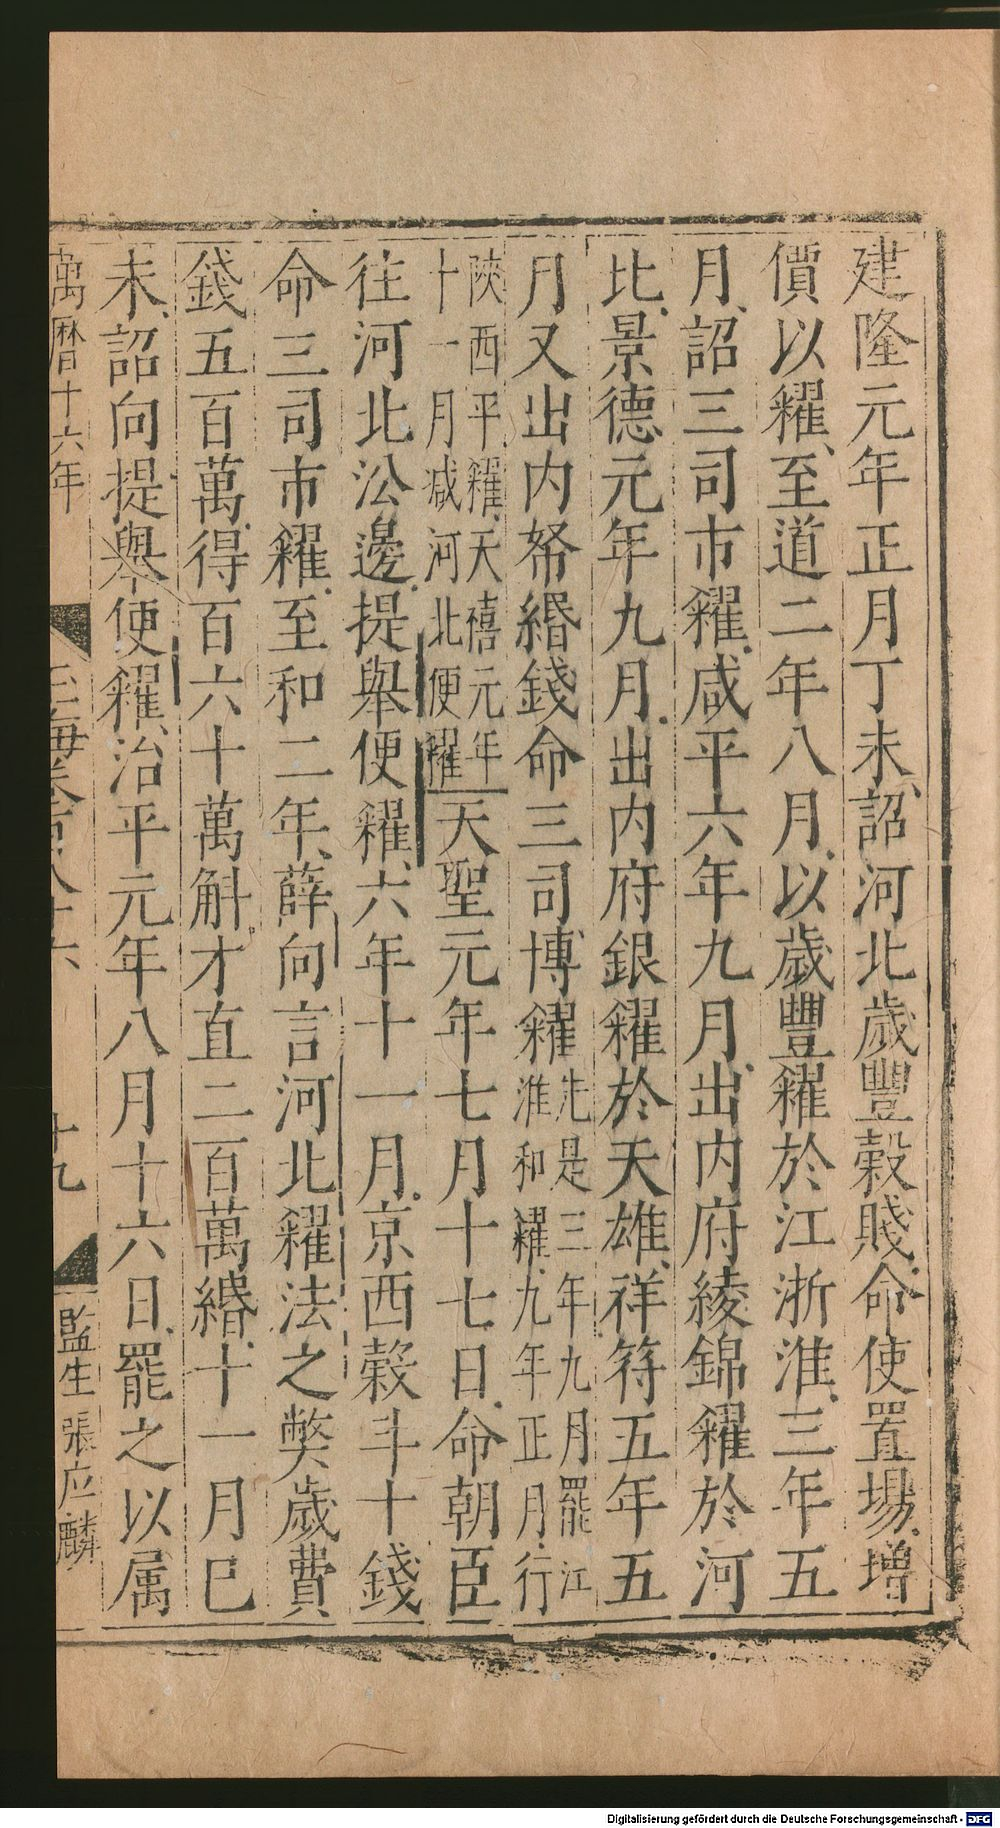 建隆元年正月丁未詔河北歲豐榖賤命使置場增
價以糴至道二年八月以歲豐糴於江浙淮三年五
月詔三司市糴咸平六年九月出內府綾錦糴於河
北景德元年九月出內府銀糴於天雄祥符五年五
月又出内帑緡錢命三司博糴先是三年九月罷江
淮和糴九年正月行
陜西平糴天禧元年
十一月减河北便糴天聖元年七月十七日命朝臣
往河北㳂邊提舉便糴六年十一月京西榖斗十錢
命三司市糴至和二年薛向言河北糴法之弊歲費
錢五百萬得百六十萬斛才直二百萬緡十一月巳
未詔向提舉便糴治平元年八月十六日罷之以属
萬曆十六年
玉海卷百八十六
十九
監生張应麟
Digitalisierung gefördert durch die Deutsche Forschungsgemeinschaft - DFG